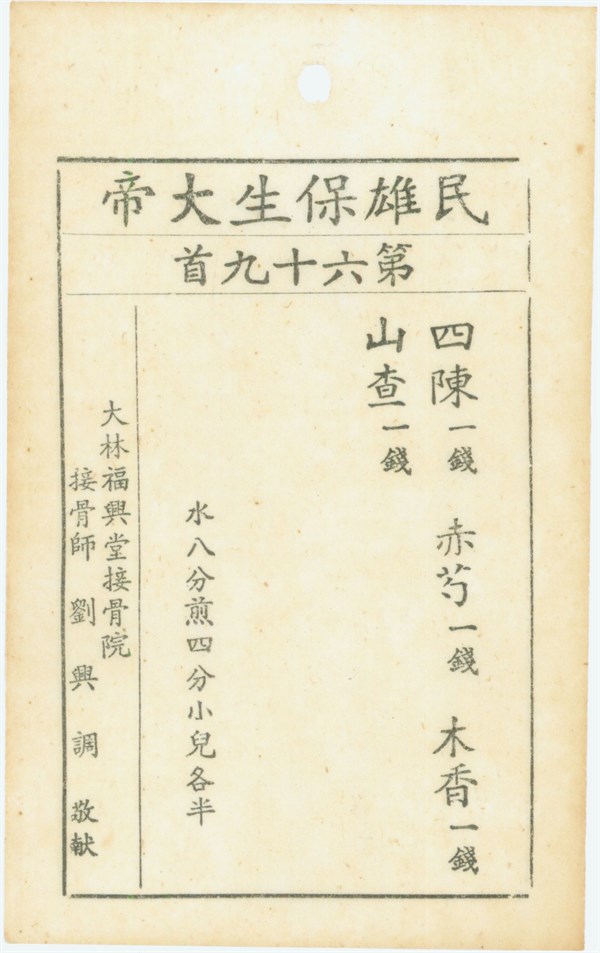 民雄保生大帝
第六十九首
四陳一錢　赤芍一錢　木香一錢
山查一錢
水八分煎四分小兒各半
大林福興堂接骨院
接骨師　劉興調　敬献